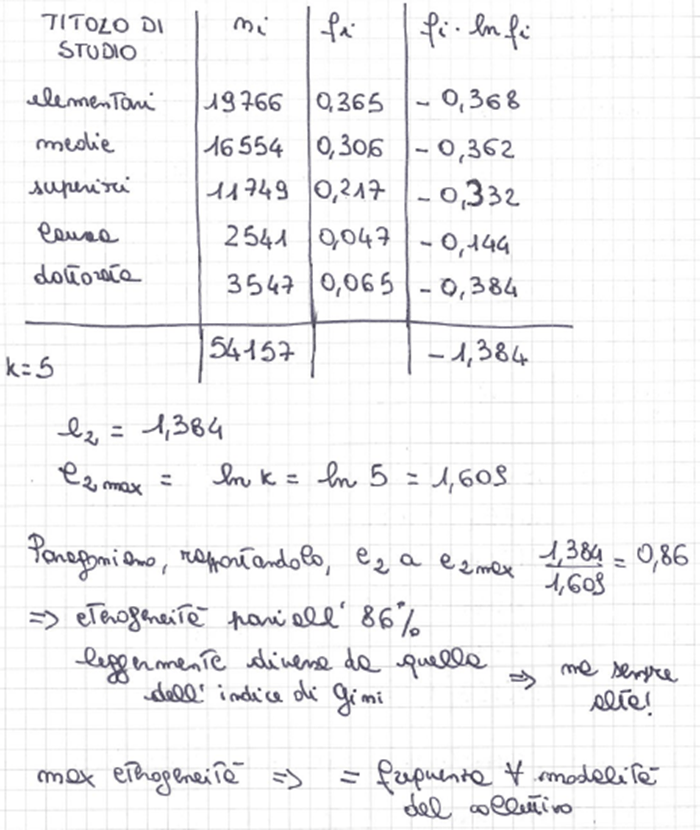 TITOLO DI STUDIO | ni | fi | fi · ln fi
elementari | 19766 | 0,365 | - 0,368
medie | 16554 | 0,306 | - 0,362
superiori | 11749 | 0,217 | - 0,332
laurea | 2541 | 0,047 | - 0,144
dottorato | 3547 | 0,065 | - 0,384
54157 | - 1,384
k=5
e2 = 1,384
e2 max = ln k = ln 5 = 1,609
Paragoniamo, rapportandolo, e2 a e2max 1,384/1,609 = 0,86
=> eterogeneità pari all' 86%
leggermente diversa da quella => ma sempre
dell' indice di Gini alta!
max eterogeneità => = frequenza ∀ modalità
del collettivo